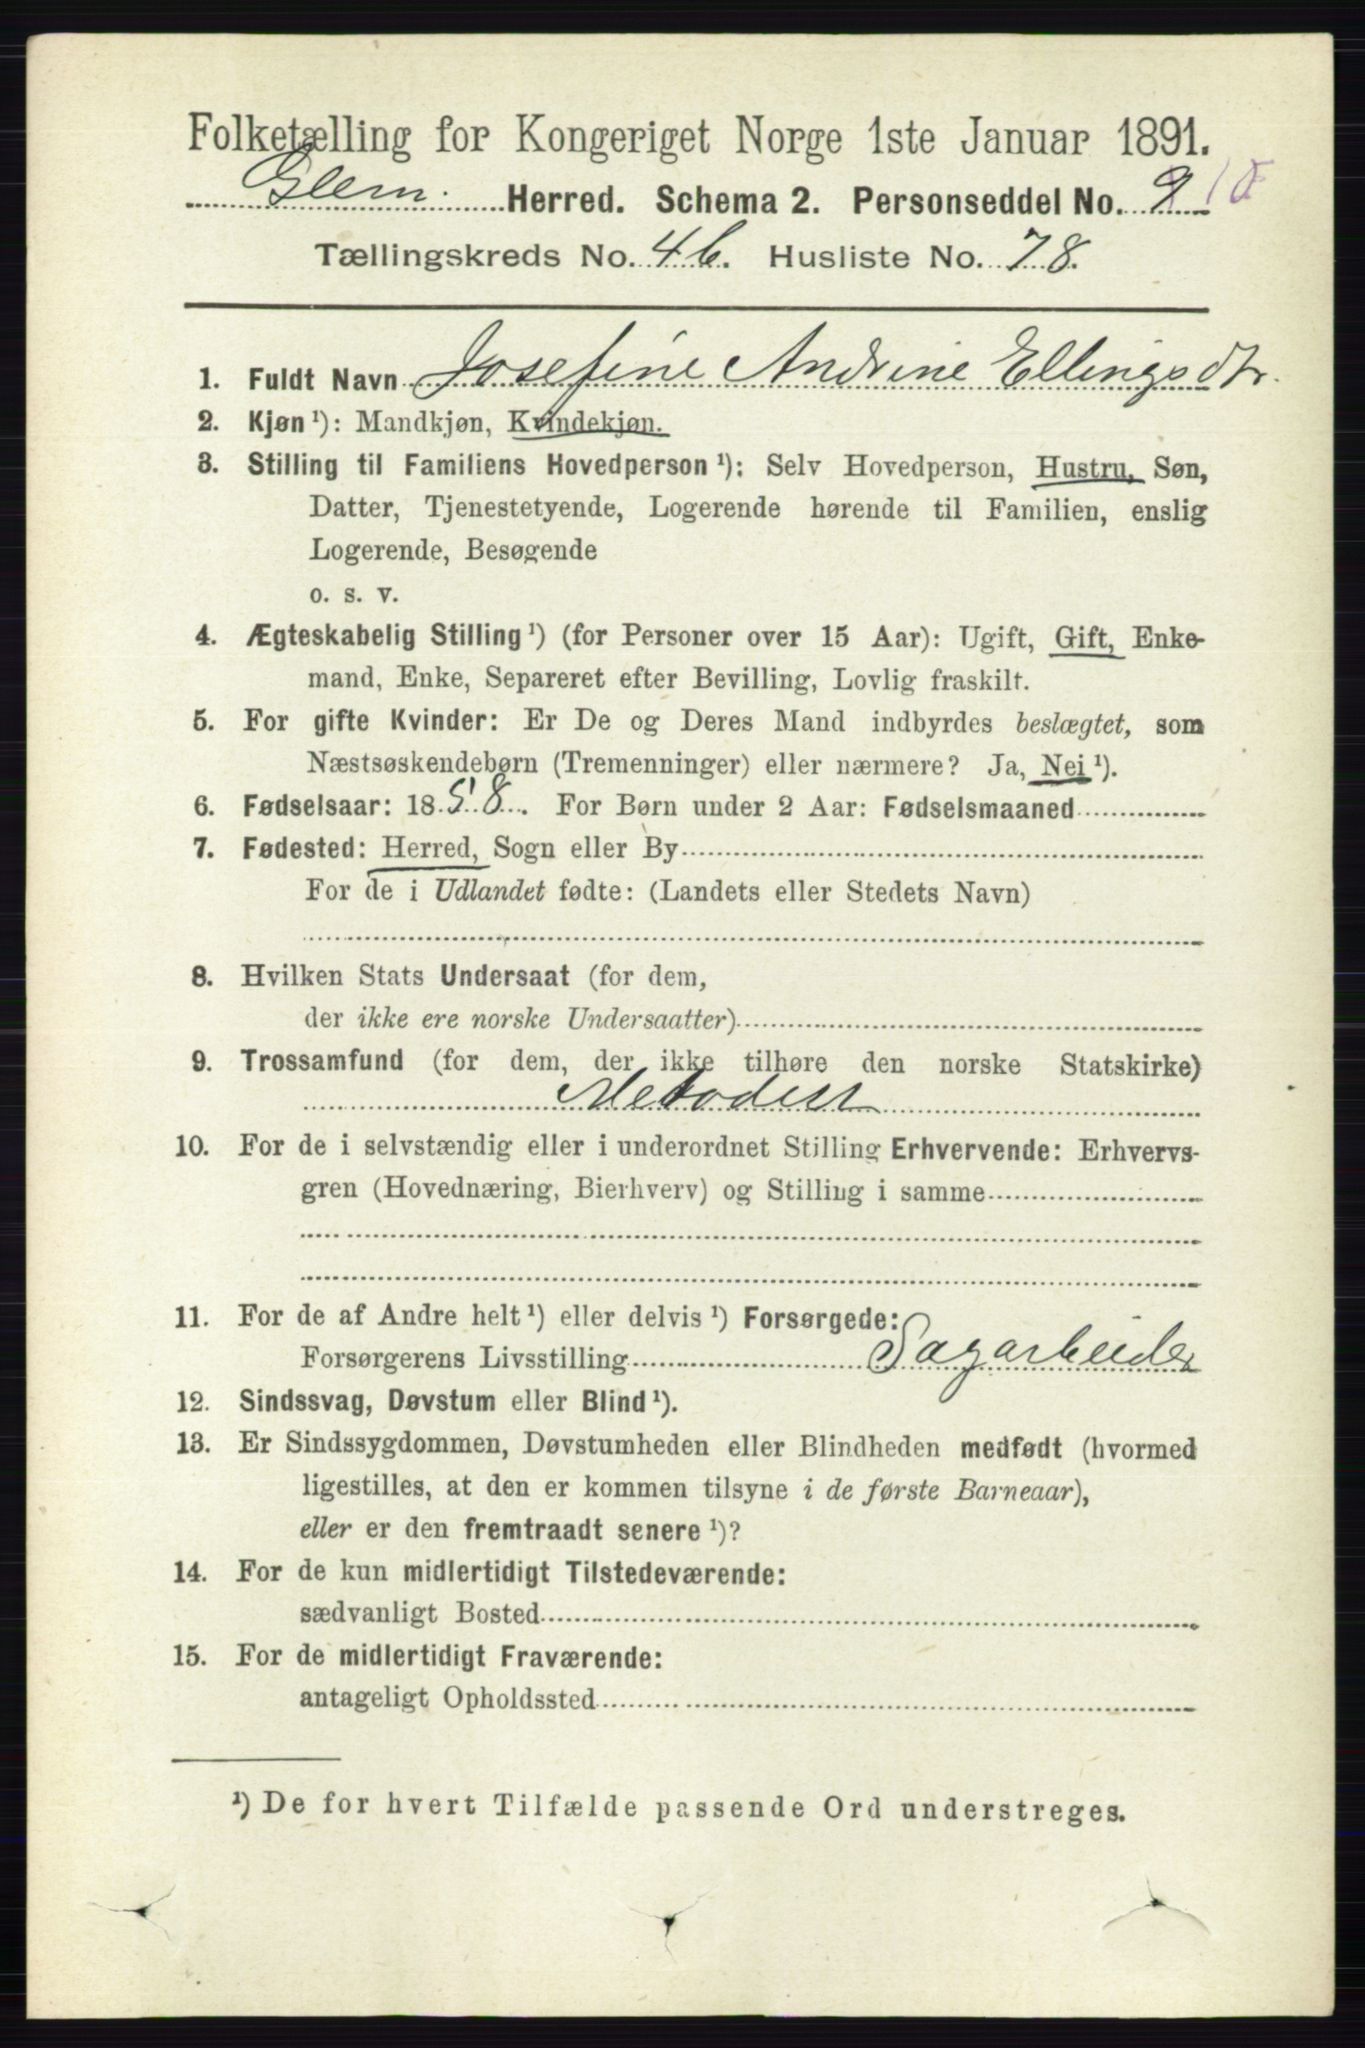 Folketælling for Kongeriget Norge 1ste Januar 1891.
Glem. Herred. Schema 2. Personseddel No. 9 10
Tællingskreds No. 4b. Husliste No. 78.
1. Fuldt Navn Josefine Andrine Ellingsdtr.
2. Kjøn¹): Mandkjøn, Kvindekjøn.
3. Stilling til Familiens Hovedperson¹): Selv Hovedperson, Hustru, Søn,
Datter, Tjenestetyende, Logerende hørende til Familien, enslig
Logerende, Besøgende
o. s. v.
4. Ægteskabelig Stilling¹) (for Personer over 15 Aar): Ugift, Gift, Enke-
mand, Enke, Separeret efter Bevilling, Lovlig fraskilt.
5. For gifte Kvinder: Er De og Deres Mand indbyrdes beslægtet, som
Næstsøskendebørn (Tremenninger) eller nærmere? Ja, Nei¹).
6. Fødselsaar: 1858. For Børn under 2 Aar: Fødselsmaaned
7. Fødested: Herred, Sogn eller By
For de i Udlandet fødte: (Landets eller Stedets Navn)
8. Hvilken Stats Undersaat (for dem,
der ikke ere norske Undersaatter)
9. Trossamfund (for dem, der ikke tilhøre den norske Statskirke)
Metodist
10. For de i selvstændig eller i underordnet Stilling Erhvervende: Erhvervs-
gren (Hovednæring, Bierhverv) og Stilling i samme
11. For de af Andre helt¹) eller delvis¹) Forsørgede:
Forsørgerens Livsstilling Sagarbeider
12. Sindssvag, Døvstum eller Blind¹).
13. Er Sindssygdommen, Døvstumheden eller Blindheden medfødt (hvormed
ligestilles, at den er kommen tilsyne i de første Barneaar),
eller er den fremtraadt senere¹)?
14. For de kun midlertidigt Tilstedeværende:
sædvanligt Bosted
15. For de midlertidigt Fraværende:
antageligt Opholdssted
¹) De for hvert Tilfælde passende Ord understreges.